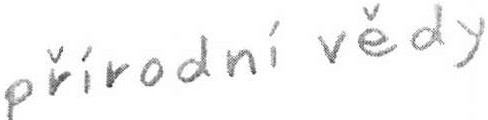 přírodní vědy